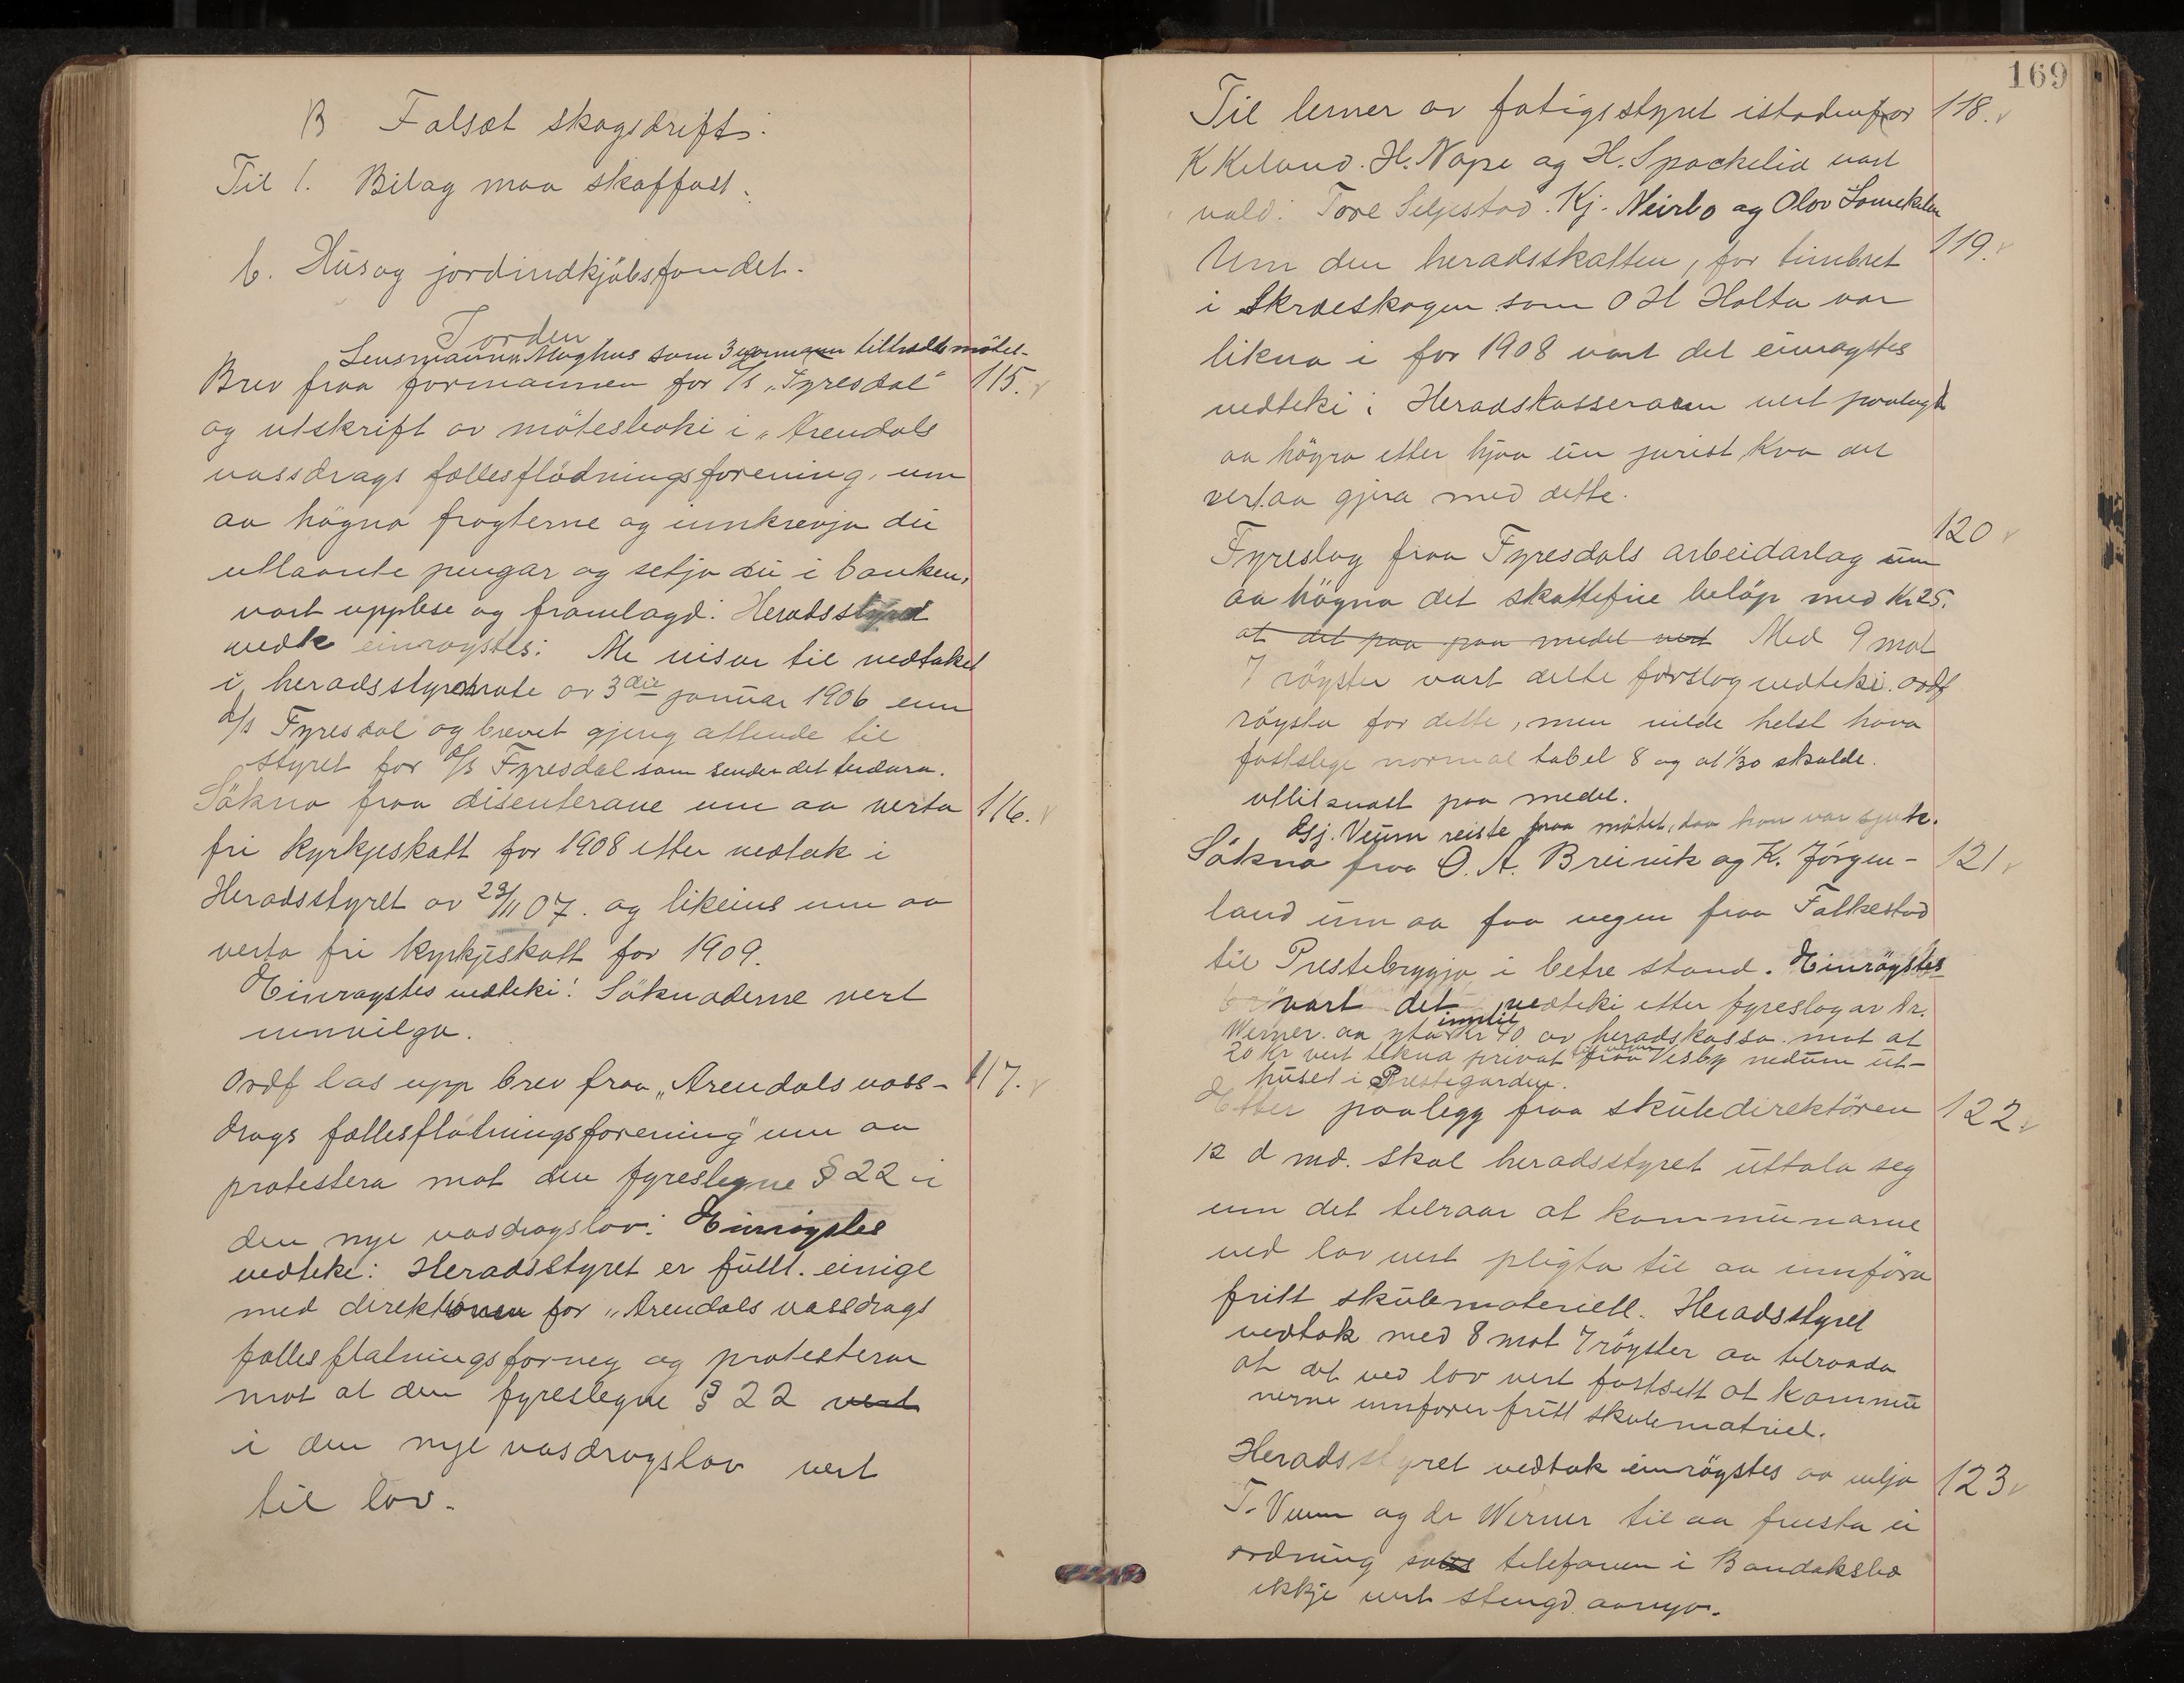 B Falsæt skogsdrift:
Til 1. Bilag maa skaffast.
b. Hus og jordindkjöbsfondet.
Torden
Lensmannen Moghus som 3 varmann tilkalla mötet.
Brev fraa formannen for A/s "Fyresdal" 115.
og utskrift av mötesboki i "Arendals
vassdrags fællesflödningsforening, um
aa högna fragterne og innkrevja dei
utlaante pengar og setja dei i banken,
vart upplese og framlagd. Heradsstyret
vedtok einrøystes: Me viser til vedtaket
i heradsstyremøte av 3die januar 1906 um
A/s Fyresdal og brevet gjeng attende til
styret for A/s Fyresdal som sender det endara.
Sökna fraa disenterane um aa verta 116.
fri kyrkjeskatt for 1908 etter vedtak i
Heradsstyret av 29/11 07. og likeins um aa
verta fri kyrkjeskatt for 1909.
Einrøystes vedteki: Söknaderne vert
innvilga.
Ordf las upp brev fraa "Arendals vass- 117.
drags fællesflötningsforening" um aa
protestera mot den fyreslegne § 22 i
den nye vasdragslov: Einröystes
vedteke: Heradsstyret er fullt. einige
med direktionen for "Arendals vassdrags
fællesflötningsforneg og protesterar
mot at den fyreslegne § 22 vert
i den nye vasdragslov vert
til lov.
169
Til lemer av fatigsstyret istadenfor 118.
K Kiland. H. Nape og H. Spockelia vart
vald: Tore Seljestad. Kj. Neirbo og Olov Lomekilen
Um den heradsskatten, for timbret 119.
i Skræskogen som O H Holta var
likna i for 1908 vart det einrøystes
vedteki: Heradskasseraren vert paalagd
aa högra etter hjaa ein jurist kva det
vert aa gjera med dette.
120
Fyreslag fraa Fyresdals arbeidarlag um
aa högna det skattefrie belöp med Kr 25.
at det paa paa medel vert Med 9 mot
7 röyster vart dette forslag vedteki. ordf
röysta for dette, men vilde helst hava
fastslege normal tabel 8 og at 1/30 skulde.
utlitnast paa medel.
Asj. Veum reiste fraa mötet, daa han var sjuk.
Sökna fraa O. A. Breivik og K. Jörgen- 121
land um aa faa vegen fraa Falkestad
til Prestebryggja i betre stand. Einröystes
vart det vedteki etter fyreslag av Dr.
Werner. aa yta inntil Kr 40 av heradskassa mot at
20 Kr vert tekna privat fraa Visby nedum ut-
huset i Prestegarden.
Etter paalegg fraa skuledirektören 122.
12 d md. skal heradsstyret uttala seg
um det tilraar at kommunarne
ved lov vert pligta til aa innföra
fritt skulemateriell. Heradsstyret
vedtok med 8 mot 7 röyster aa tilraada
at det ved lov vert fastsett at kommu
nerne innforer fritt skulematriel.
Heradsstyret vedtok einröystes aa velja 123
T. Veum og dr Werner til aa freista ei
ordning so telefonen i Bandakslid
ikkje vert stengd